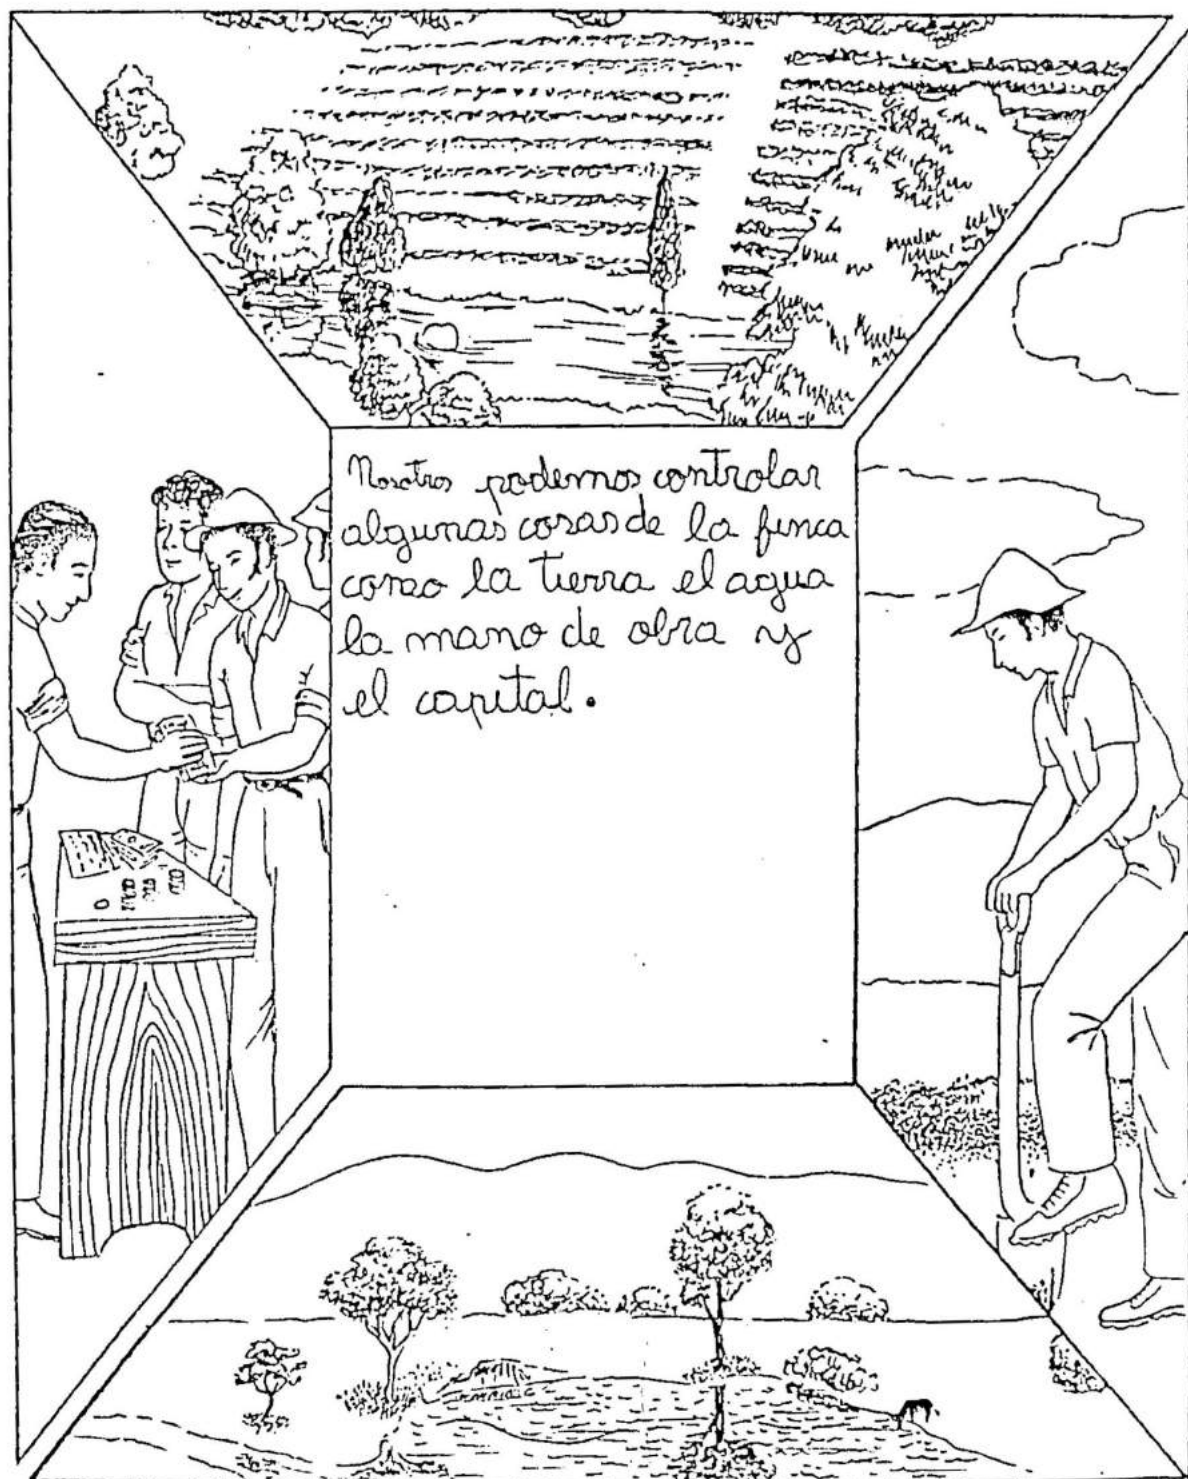 Nosotros podemos controlar
algunas cosas de la finca
como la tierra el agua
la mano de obra y
el capital.